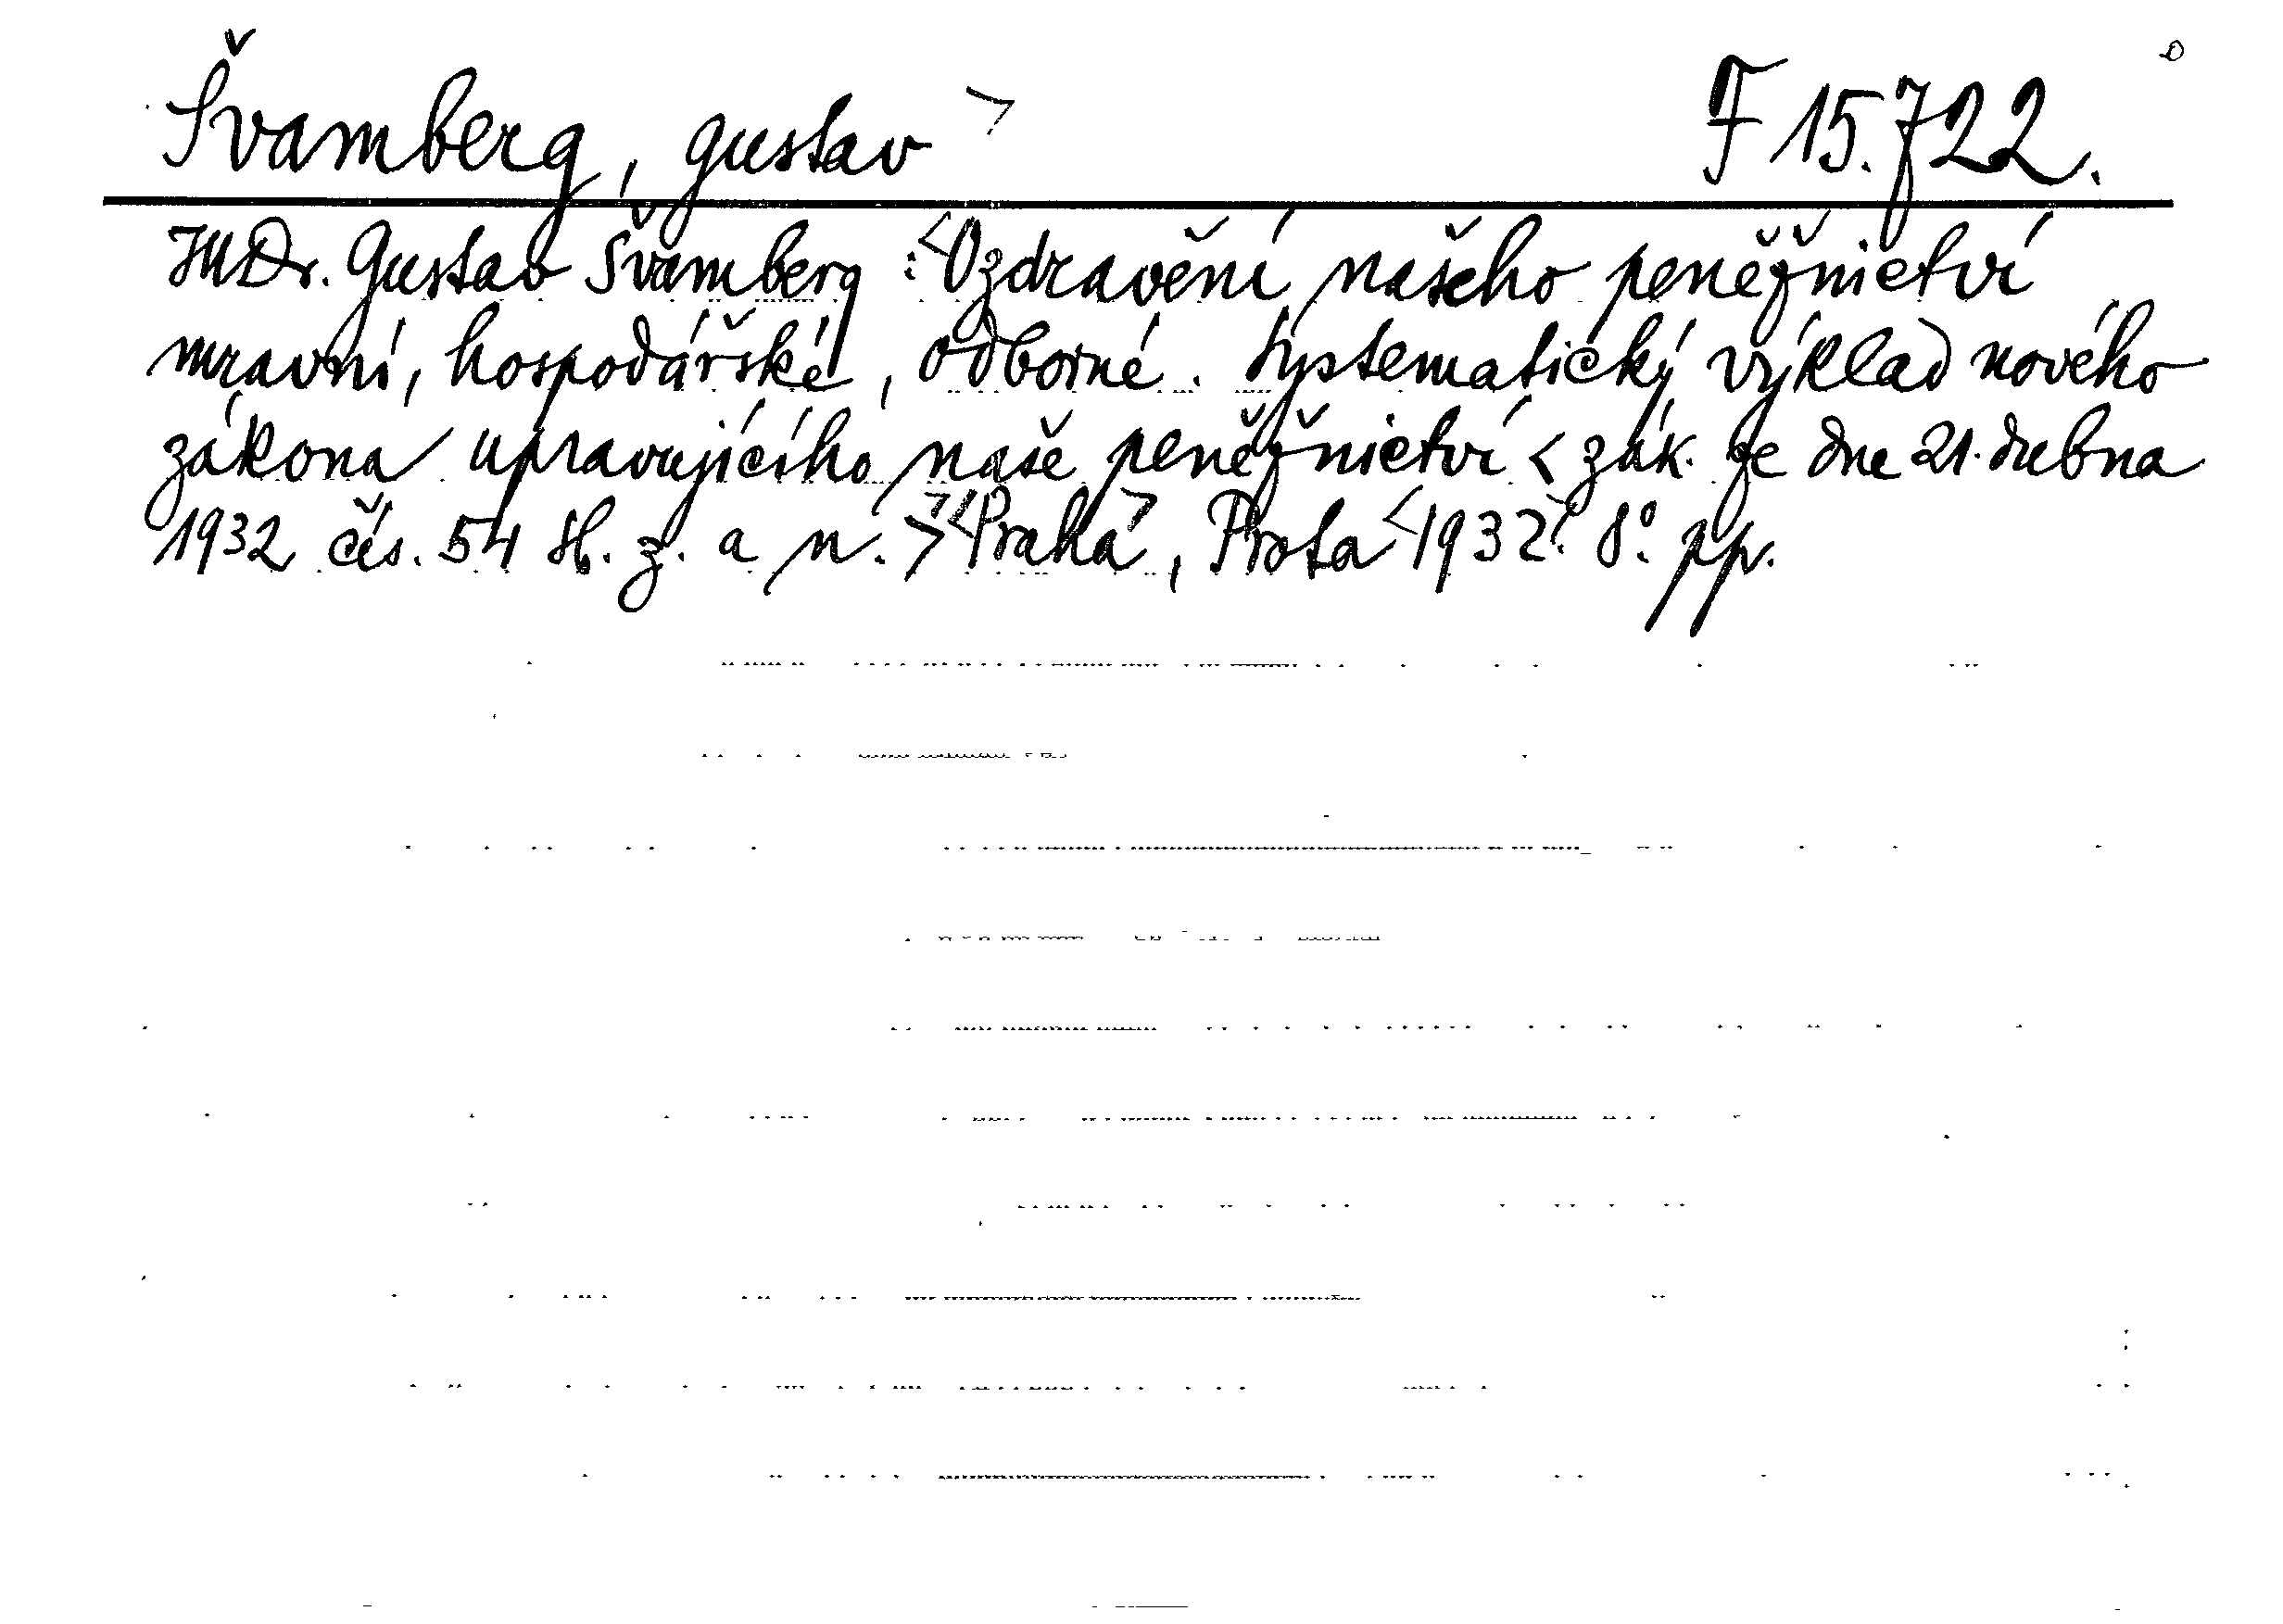 Švamberg, Gustav > F 15.722.
JUDr. Gustav Švamberg : <Ozdravění našeho peněžnictví
mravní, hospodářské, odborné. Systematický výklad nového
zákona upravujícího naše peněžnictví < zák. ze dne 21. dubna
1932 čís. 54 sb. z. a n. >> <Praha>, Prota <1932>. 8°. pp.